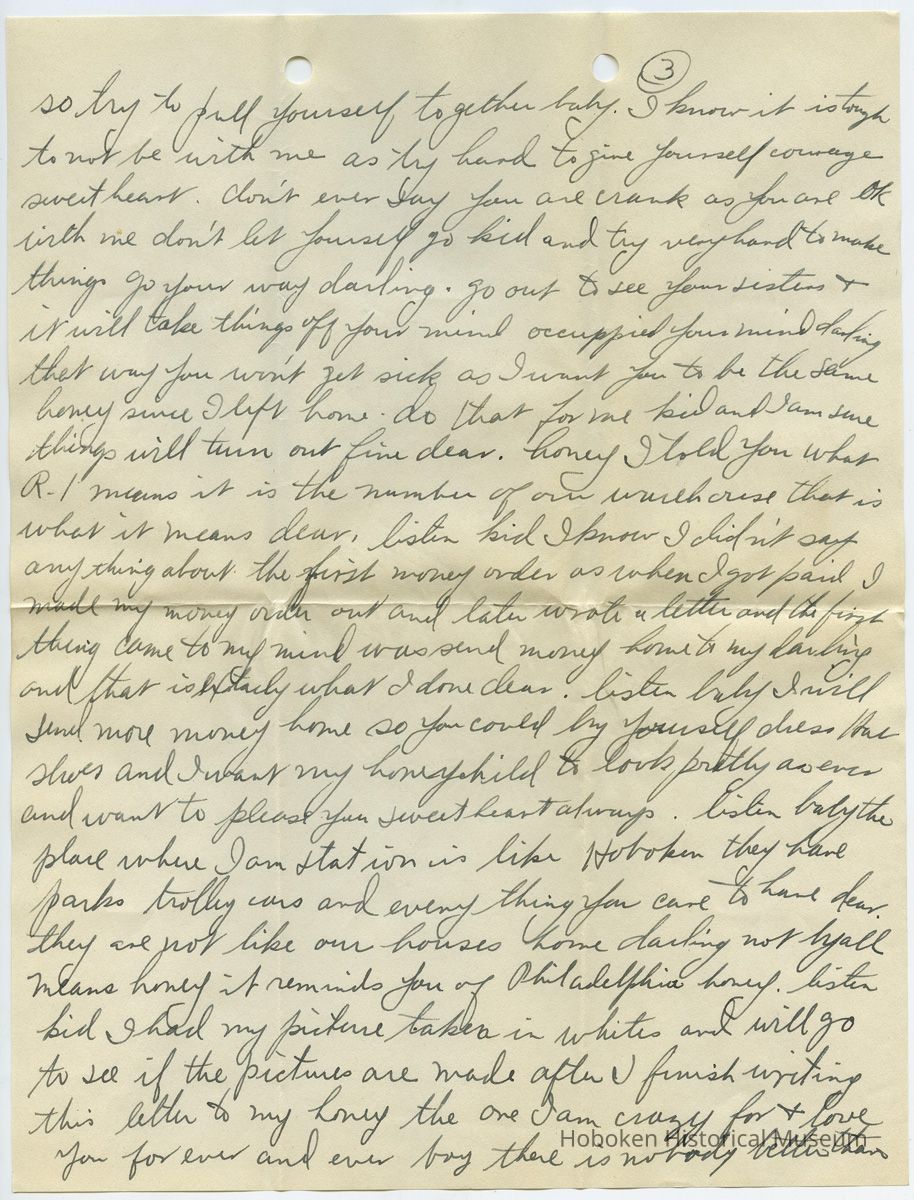 3
so try to pull yourself together baby. I know it is tough
to not be with me as try hard to give yourself courage
sweetheart. don't ever say you are crank as you are ok
with me don't let yourself go kid and try very hard to make
things go your way darling. go out to see your sisters &
it will take things off your mind occuppied your mind darling
that way you won't get sick as I want you to be the same
honey since I left home. do that for me kid and I am sure
things will turn out fine dear. honey I told you what
R-1 means it is the number of our warehouse that is
what it means dear. listen kid I know I didn't say
anything about the first money order as when I got paid I
made my money order out and later wrote a letter and the first
thing came to my mind was send money home to my darling
and that is what I done dear. listen baby I will
send more money home so you could by yourself dress Hat
shoes and I want my honeychild to look pretty as ever
and want to please you sweetheart always. listen baby the
place where I am station is like Hoboken they have
parks trolley cars and every thing you care to have dear.
they are not like our houses home darling not by all
means honey it reminds you of Philadelphia honey. listen
kid I had my picture taken in whites and will go
to see if the pictures are made after I finish writing
this letter to my honey the one I am crazy for & love
you for ever and ever boy there is nobody better than
Hoboken Historical Museum